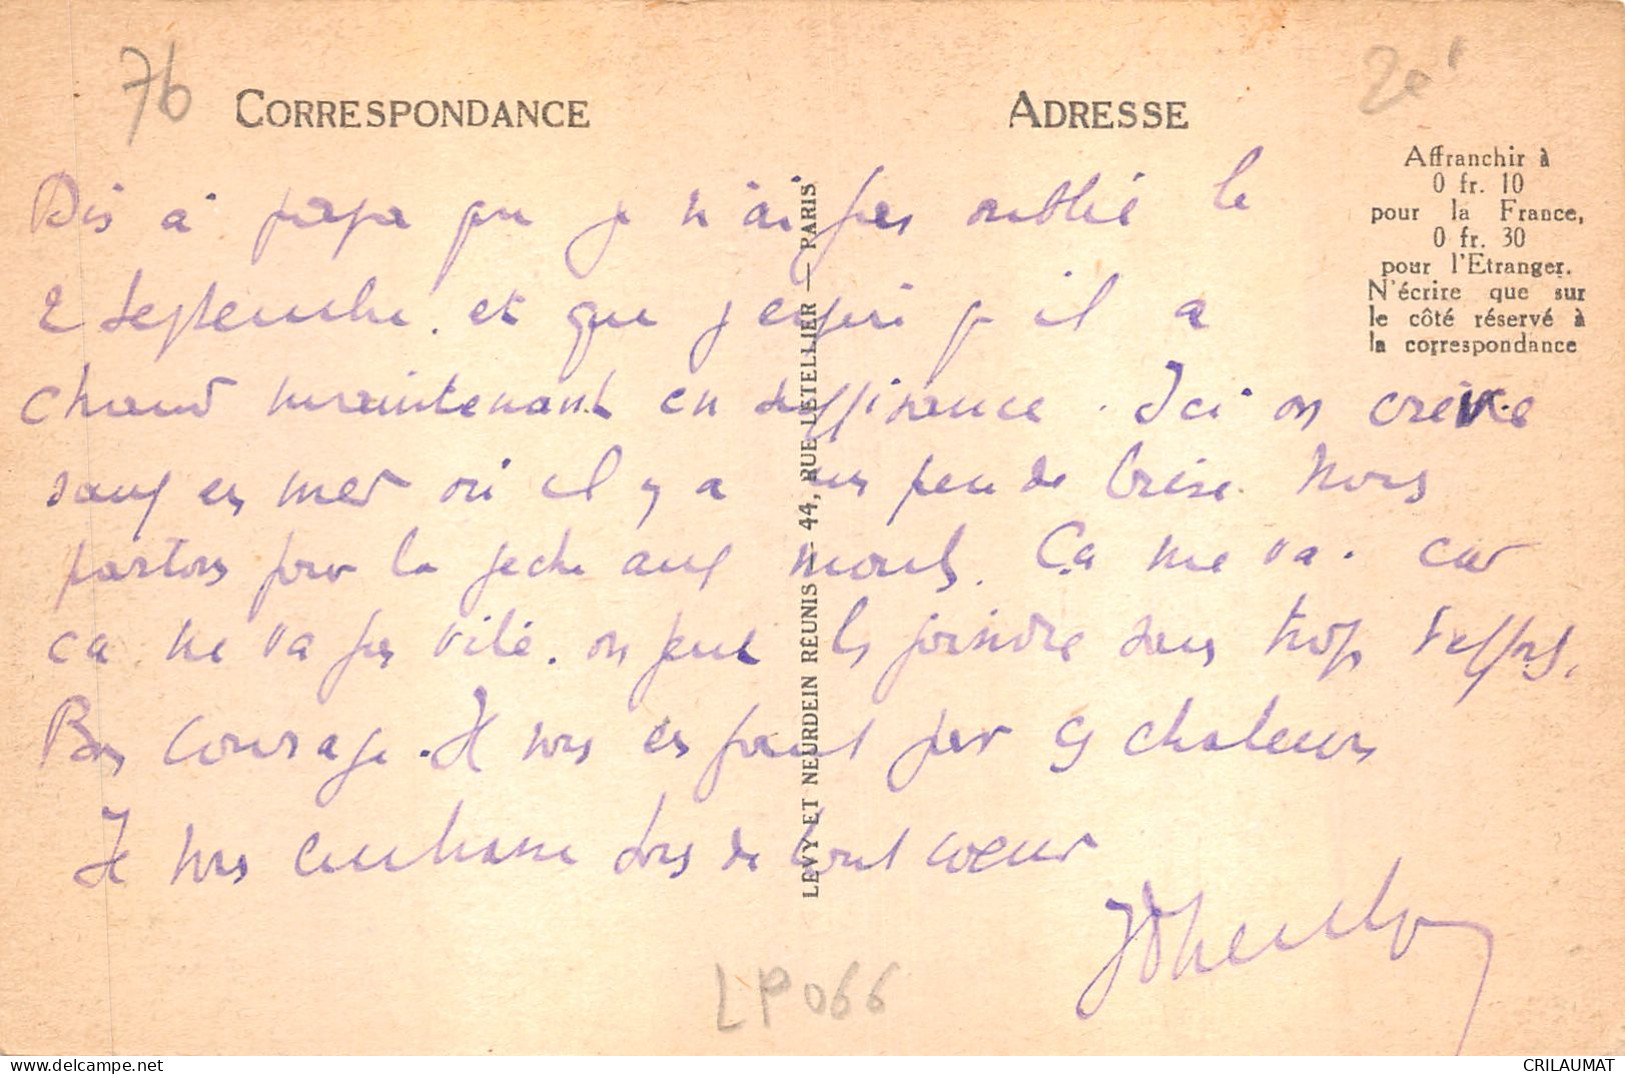 76
20
CORRESPONDANCE
ADRESSE
Affranchir à
0 fr. 10
pour la France,
0 fr. 30
pour l'Etranger.
N'écrire que sur
le côté réservé à
la correspondance
Dis à papa que je n'ai pas oublié le
2 septembre. et que j'espère qu'il a
chaud maintenant en suffisance. Ici on crève
sauf en mer où il y a un peu de brise. Nous
partons pour la pêche aux moules. Ça me va. car
ça ne va pas vite. on peut les joindre sans trop d'efforts.
Bon courage. Il nous en faut par ces chaleurs
Je vous embrasse tous de tout cœur
LEVY ET NEURDEIN REUNIS — 44, RUE LETELLIER — PARIS
LP 066
CRILAUMAT